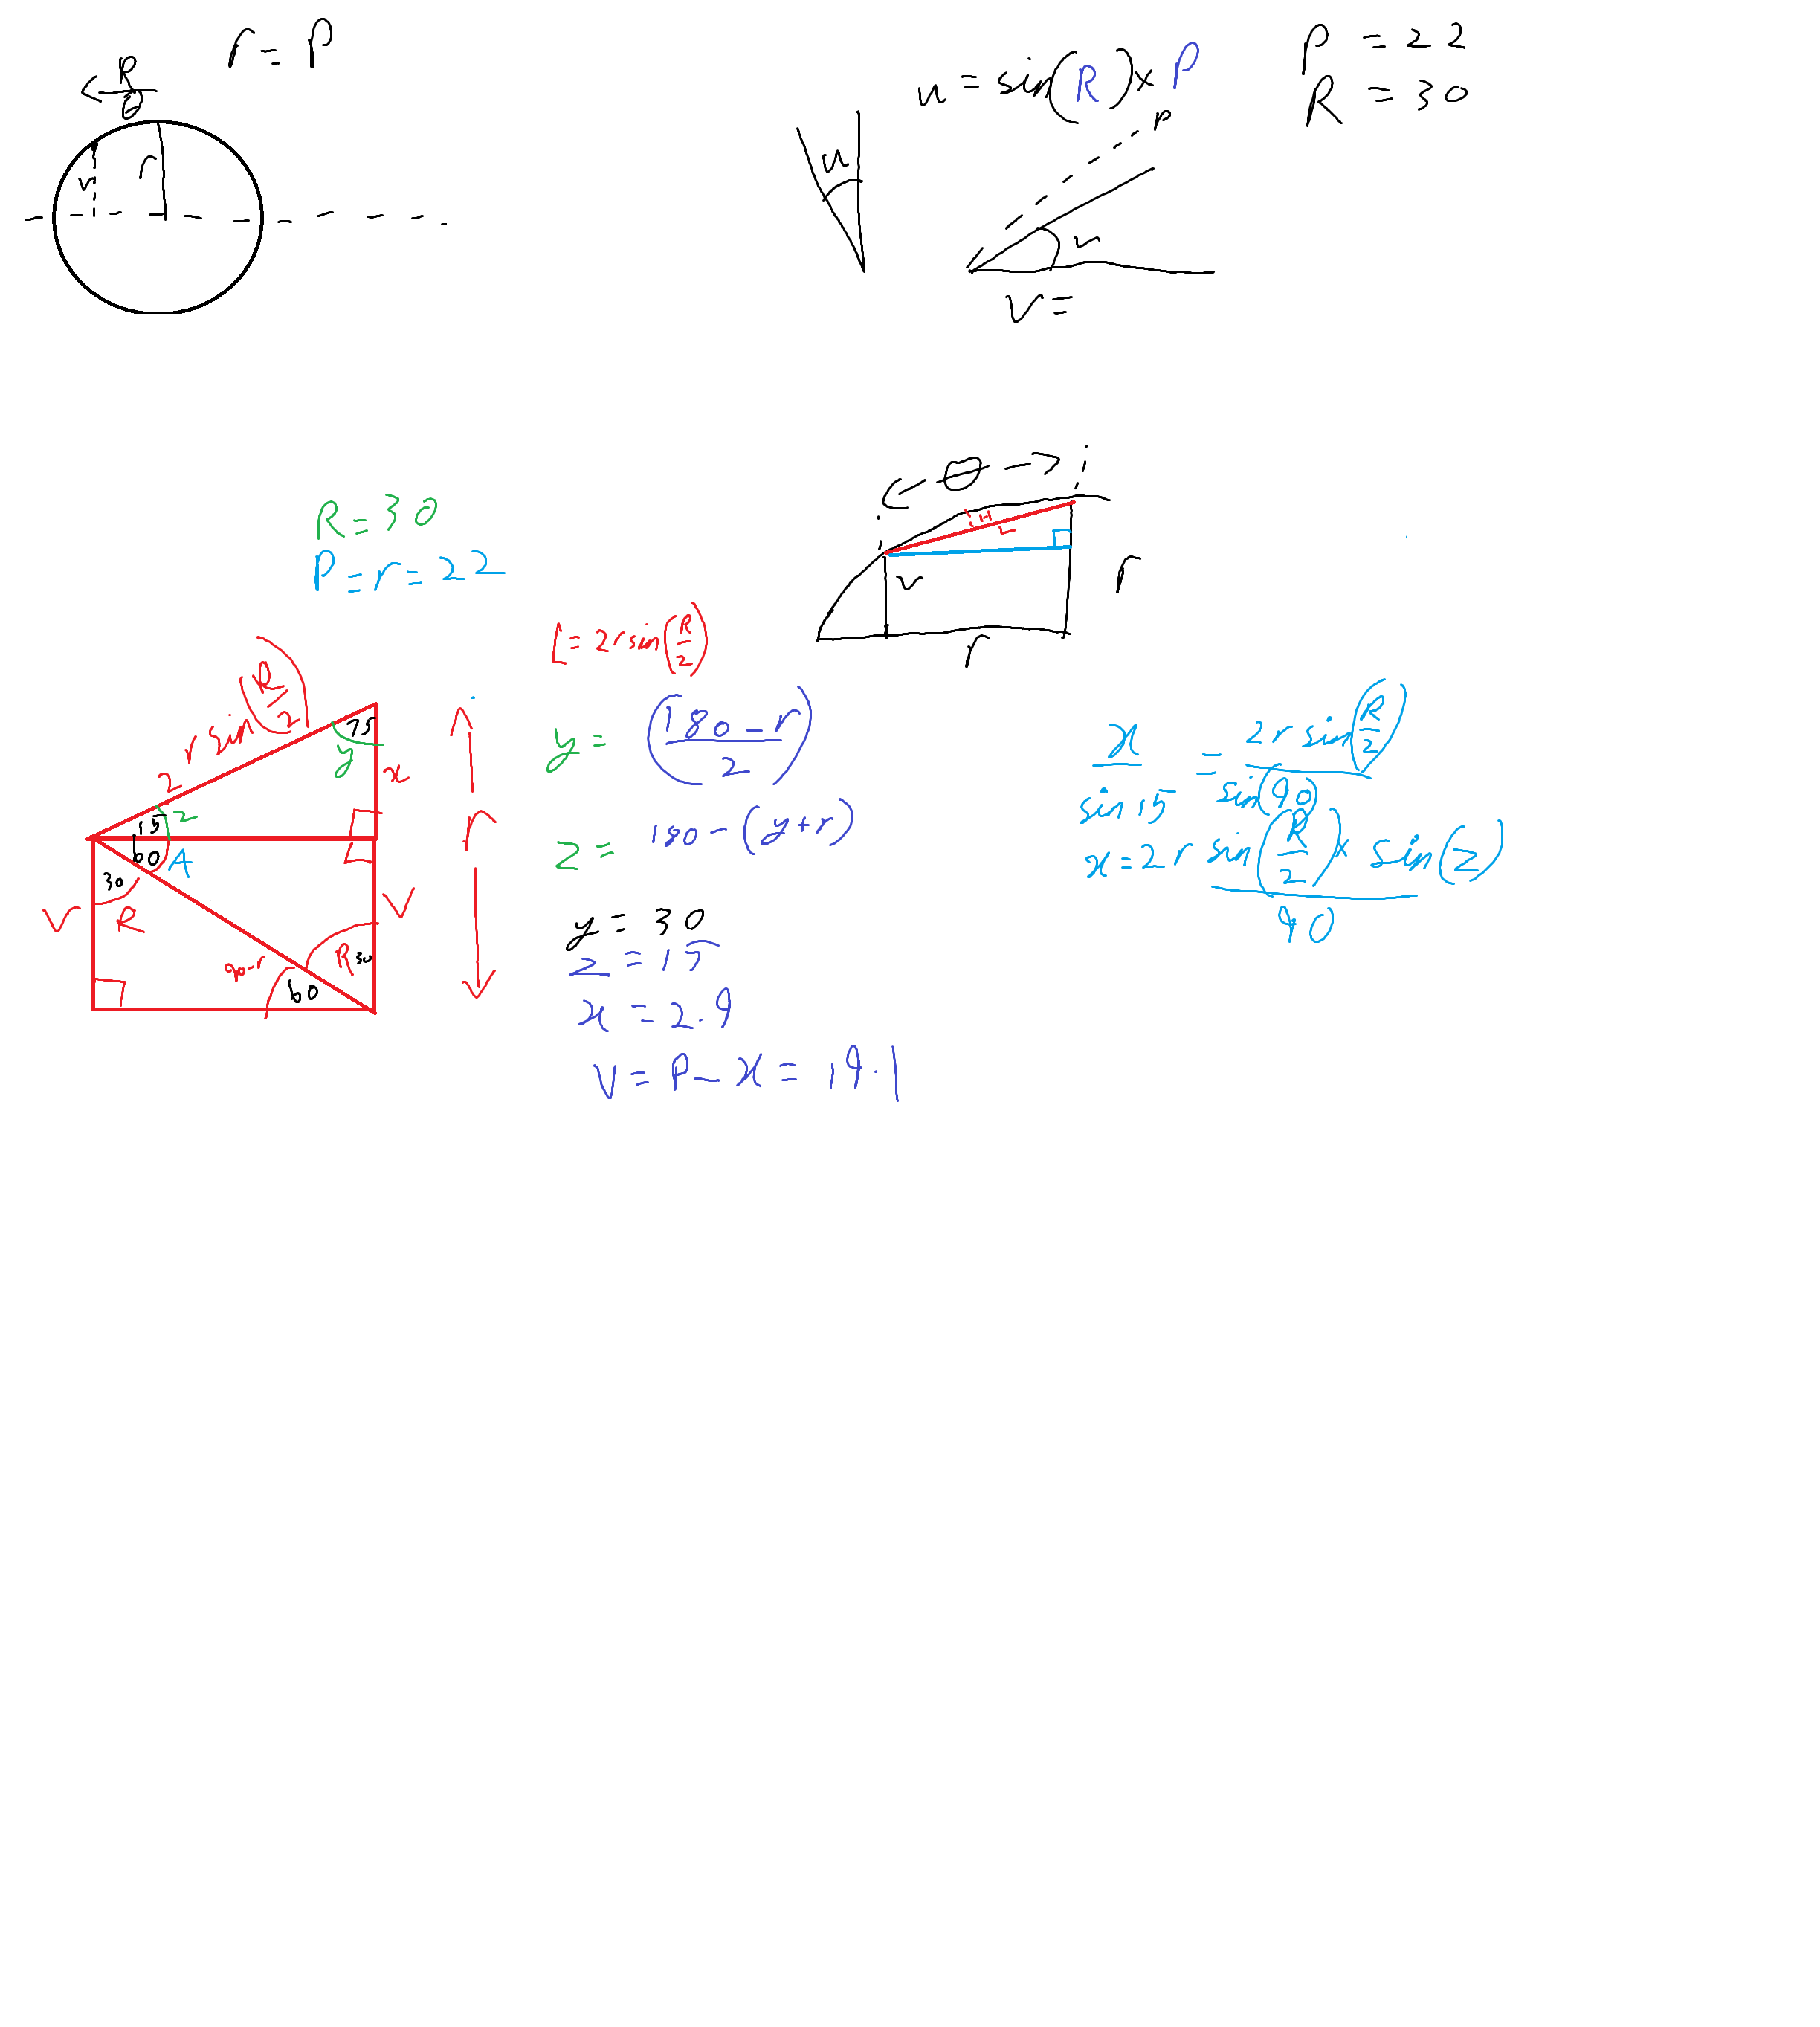 r = P
R
θ
r
v
u = sin(R) × P
P = 22
R = 30
u
P
v
v =
θ
H
L
v
r
r
R = 30
P = r = 22
2 r sin(R/2)
75
y
x
15
z
60
A
30
R
v
r
v
90-r
60
R 30
L = 2r sin(R/2)
y = (180 - r / 2)
z = 180 - (y + r)
y = 30
z = 15
x = 2.9
v = P - x = 19.1
x / sin 15 = 2r sin(R/2) / sin(90)
x = 2r sin(R/2) × sin(z) / 90